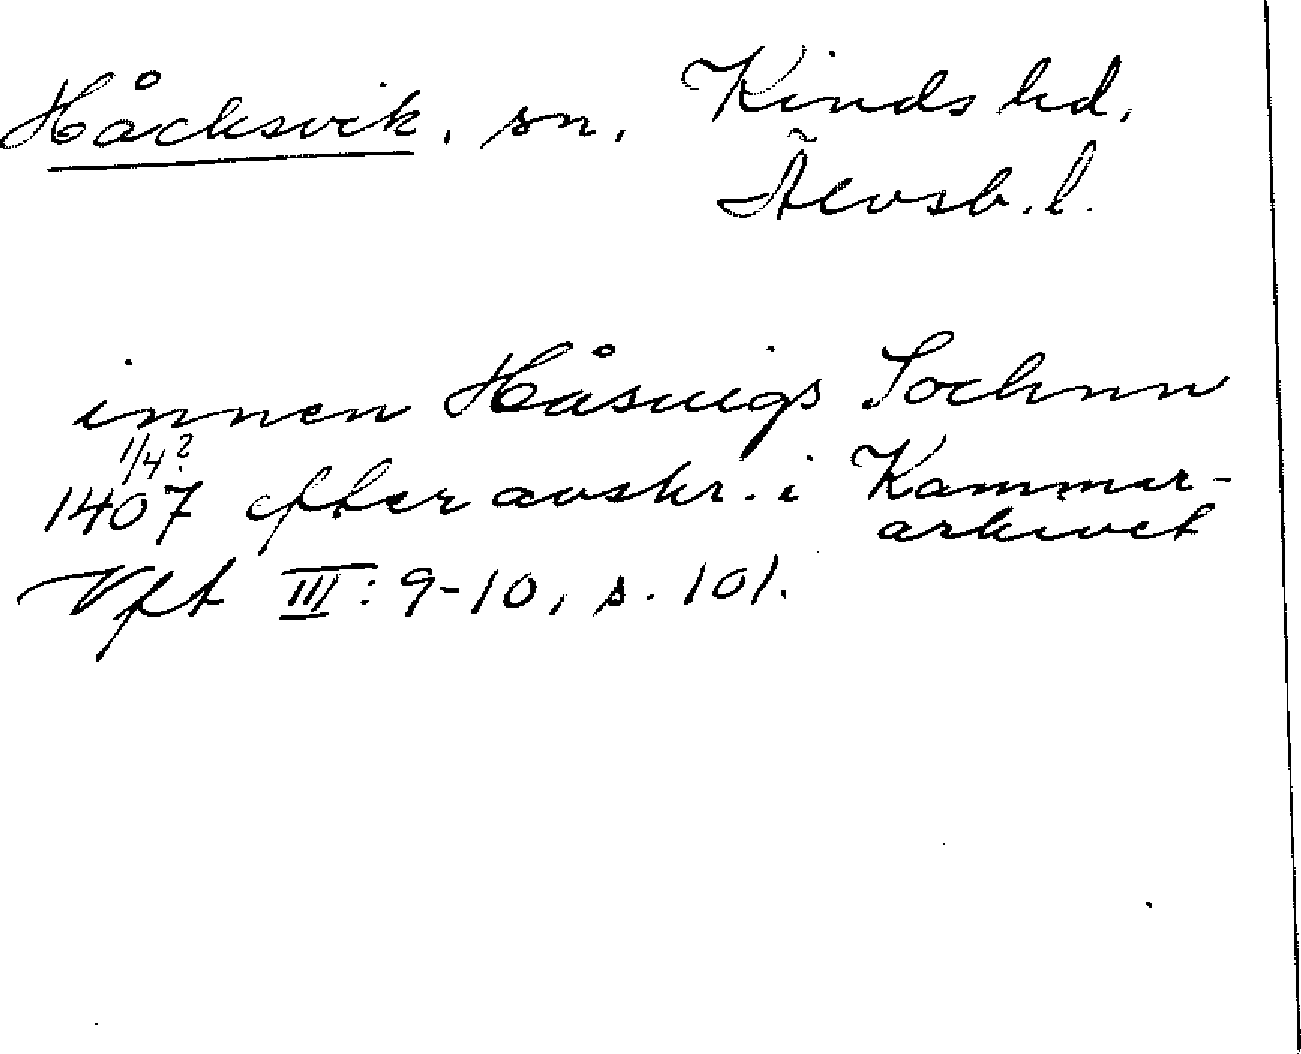 Håcksvik, sn, Kinds hd,
Älvsb. l.
innen Håsuigs Sochnn
1/4?
1407 efter avskr. i Kammar-
arkivet
Vft III: 9-10, s. 101.